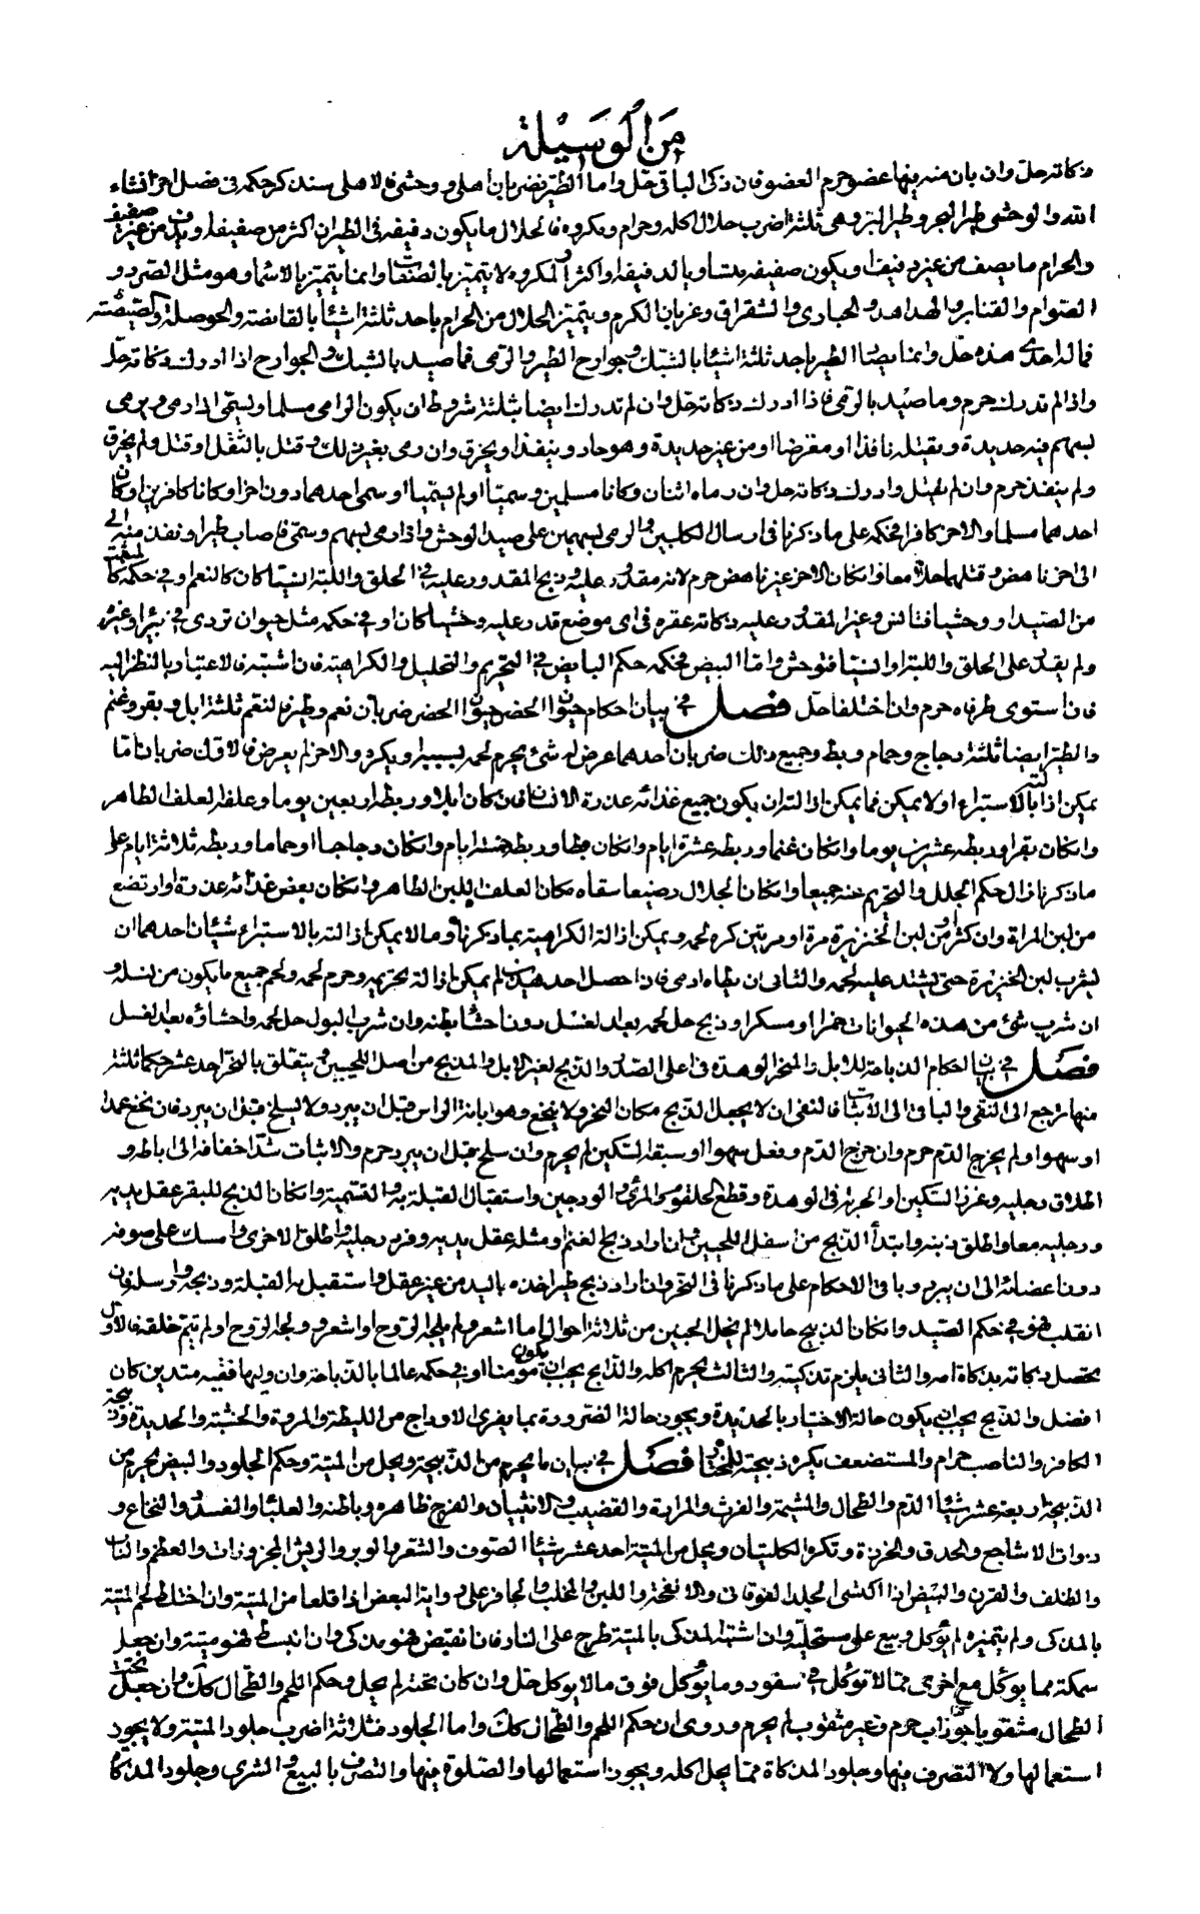 من الوسيلة
ذكاته حل وان بان منه بنها عضو حرم العضو فان ذكى الباقي حل واما الطير فضربان اهلي ووحشي فالاهلي سنذكر حكمه في فصل اخر انشاء
الله والوحشي طير البحر وطير البر وهي ثلثة اضرب حلال اكله وحرام ومكروه فالحلال ما يكون دفيفه في الطيران اكثر من صفيفه او يدف من غير صفيف
والحرام ما يصف من غير دفيف او يكون صفيفه متساويا لدفيفه او اكثر والمكروه لا يتميز بالصفات وانما يتميز بالاسماء وهو مثل الصرد و
الصوام والقنابر والهداهد والحبارى والشقراق وغربان الكرم ويتميز الحلال من الحرام باحد ثلثة اشياء بالقانصة والحوصلة والصيصية
فما له احدى هذه حل وانما يصاد الطير باحد ثلثة اشياء بالشبك وجوارح الطير والرمي فما صيد بالشبك والجوارح اذا ادرك ذكاته حل
واذا لم تدرك حرم وما صيد بالرمي فاذا ادرك ذكاته حل وان لم تدرك ايضا بثلثة شروط ان يكون الرامي مسلما ويسمى اذا رمى ويرمي
بسهم فيه حديدة ويقتله نافذا او مفترضا او من غير حديدة وهو حاد وينفذ او يخرق وان رمى بغير ذلك وقتل بالثقل او قتل ولم يخرق
ولم ينفذ حرم وان لم يقتل وادرك ذكاته حل وان رماه اثنان وكانا مسلمين وسميا او لم يسميا او سمى احدهما دون اخر او كانا كافرين او كان
احدهما مسلما والاخر كافرا فحكمه على ما ذكرنا في ارسال الكلبين والرمي بسهمين على صيد الوحش واذا رمى بسهم وسمى فاصاب طيرا ونفذ منه الى
الى اخر ناهض وقتلهما حلا معا وان كان الاخر غير ناهض حرم لانه مقدور عليه وذبح المقدور عليه في الحلق واللبة انسيا كان كالنعم او في حكمه كا
من الصيد او وحشيا فتانس وغير المقدور عليه ذكاته عقره في اي موضع قدر عليه وحشيا كان او في حكمه مثل حيوان تردى في بئر او غيره
ولم يقدر على الحلق واللبة او انسيا فتوحش واما البيض فحكمه حكم البايض في التحريم والتحليل والكراهية فان اشتبه فالاعتبار بالنظر اليه
فان استوى طرفاه حرم وان اختلفا حل فصل في بيان احكام حيوان الحضر حيوان الحضر ضربان نعم وطير فالنعم ثلثة ابل وبقر وغنم
والطير ايضا ثلثة دجاج وحمام وبط وجميع ذلك ضربان احدهما عرض له شئ يحرم لحمه بسببه او يكره والاخر لم يعرض فالاول ضربان اما
يمكن اذالته بالاستبراء او لا يمكن فما يمكن اذالته ان يكون جميع غذائه عذرة الانسان فان كان ابلا وربطه اربعين يوما وعلفه العلف الطاهر
وان كان بقرا وربطه عشرين يوما وان كان غنما وربطه عشرة ايام وان كان بطا وربطه خمسة ايام وان كان دجاجا او حماما وربطه ثلاثة ايام على
ما ذكرنا ذال حكم الجلل والتحريم عنه جميعا وان كان الجلال رضيعا سقاه مكان العلف اللبن الطاهر وان كان بعض غذائه عذرة او ارتضع
من لبن المراة وان كثر او من لبن الخنزيرة مرة او مرتين كره لحمه ويمكن اذالة الكراهية بما ذكرناه وما لا يمكن اذالته بالاستبراء شيئان احدهما ان
يشرب لبن الخنزيرة حتى يشتد عليه لحمه والثاني ان يطاه ادمي فاذا حصل احد هذين لم يمكن اذالة تحريمه وحرم لحمه ولحم جميع ما يكون من نسله و
ان شرب شئ من هذه الحيوانات خمرا او مسكرا وذبح حل لحمه بعد الغسل دون احشا بطنه وان شرب البول حل لحمه واحشاؤه بعد الغسل
فصل في بيان احكام الذباحة للابل والمنحر الوهدة في اعلى الصدر والذبح لغير الابل والمذبح من اصل اللحيين ويتعلق بالنحر احد عشر حكما ثلثة
منها ترجع الى النفي والباقي الى الاثبات فالنفي ان لا يجعل الذبح مكان النحر ولا ينخع وهو ابانة الراس قبل ان يبرد ولا يسلخ قبل ان يبرد فان نخع عمدا
او سهوا ولم يخرج الدم حرم وان خرج الدم وفعل سهوا او سبقه السكين لم يحرم وان سلخ قبل ان يبرد حرم والاثبات شد اخفافه الى اباطه و
اطلاق رجليه وغرز السكين او الحربة في الوهدة وقطع الحلقوم والمرئ والودجين واستقبال القبلة به والتسمية وان كان الذبح للبقر عقل يديه
ورجليه معا واطلق ذنبه وابتدأ الذبح من اسفل اللحيين وان اراد ذبح الغنم او مثله عقل يديه وفرد رجليه واطلق الاخرى وامسك على صوفه
دون اعضائه الى ان يبرد وباقي الاحكام على ما ذكرنا في النحر وان اراد ذبح طير اخذه باليد من غير عقل واستقبل به القبلة وذبحه وارسله فان
انقلب فهو في حكم الصيد وان كان الذبيح حاملا لم يخل الجنين من ثلاثة احوال اما اشعر ولم يلجه الروح او اشعر وولجه الروح او لم يتم خلقه فالاول
تحصل ذكاته بذكاة امه والثاني يلزم تذكيته والثالث يحرم اكله والذابح يجب ان يكون مؤمنا او في حكمه عالما بالذباحة وان وليها فقيه متدين كان
افضل والذبح يجب ان يكون حالة الاختيار بالحديدة ويجوز حالة الضرورة بما يفري الاوداج من الليطة والمروة والخشبة والحديدة وذبيحة
الكافر والناصب حرام والمستضعف يكره ذبيحته فصل في بيان ما يحرم من الذبيحة ويحل من الميتة وحكم الجلود والبيض يحرم من
الذبيحة اربعة عشر شيئا الدم والطحال والمشيمة والفرث والمرارة والقضيب والانثيان والفرج ظاهره وباطنه والعلباء والغدد والنخاع و
ذوات الاشاجع والحدق والخرزة وتكره الكليتان ويحل من الميتة احد عشر شيئا الصوف والشعر والوبر والريش المجزوزات والعظم والناب
والظلف والقرن والبيض اذا اكتسى الجلد الفوقاني والانفحة واللبن والمخلب والحافر على رواية البعض اذا قلعا من الميتة وان اختلط لحم الميتة
بالمذكى ولم يتميز لم يؤكل وبيع على مستحليه وان اشتبه المذكى بالميتة طرح على النار فان انقبض فهو مذكى وان انبسط فهو ميتة وان جعل
سمكة مما يؤكل مع اخرى مما لا تؤكل في سفود وما يؤكل فوق ما لا يؤكل حل وان كان تحته لم يحل وحكم اللحم والطحال كك وان جعل تحت
الطحال مثقوبا جوذاب حرم وغير مثقوب لم يحرم وروى ان حكم اللحم والطحال كك واما الجلود فثلاثة اضرب جلود الميتة ولا يجوز
استعمالها ولا التصرف فيها وجلود المذكاة مما يحل اكله ويجوز استعمالها والصلوة فيها والتصرف بالبيع والشرى وجلود المذكاة